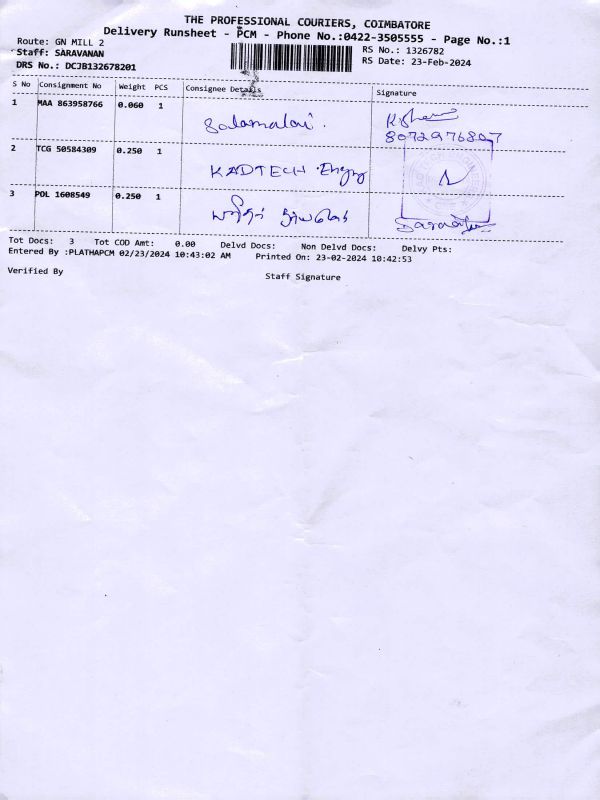 THE PROFESSIONAL COURIERS, COIMBATORE
Delivery Runsheet - PCM - Phone No.:0422-3505555 - Page No.:1
Route: GN MILL 2
RS No.: 1326782
Staff: SARAVANAN
RS Date: 23-Feb-2024
DRS No.: DCJB132678201
S No Consignment No Weight PCS Consignee Details Signature
1 MAA 863958766 0.060 1
8072976807
2 TCG 50584309 0.250 1 KADTECH Engg
3 POL 1608549 0.250 1
Tot Docs: 3 Tot COD Amt: 0.00 Delvd Docs: Non Delvd Docs: Delvy Pts:
Entered By :PLATHAPCM 02/23/2024 10:43:02 AM Printed On: 23-02-2024 10:42:53
Verified By
Staff Signature